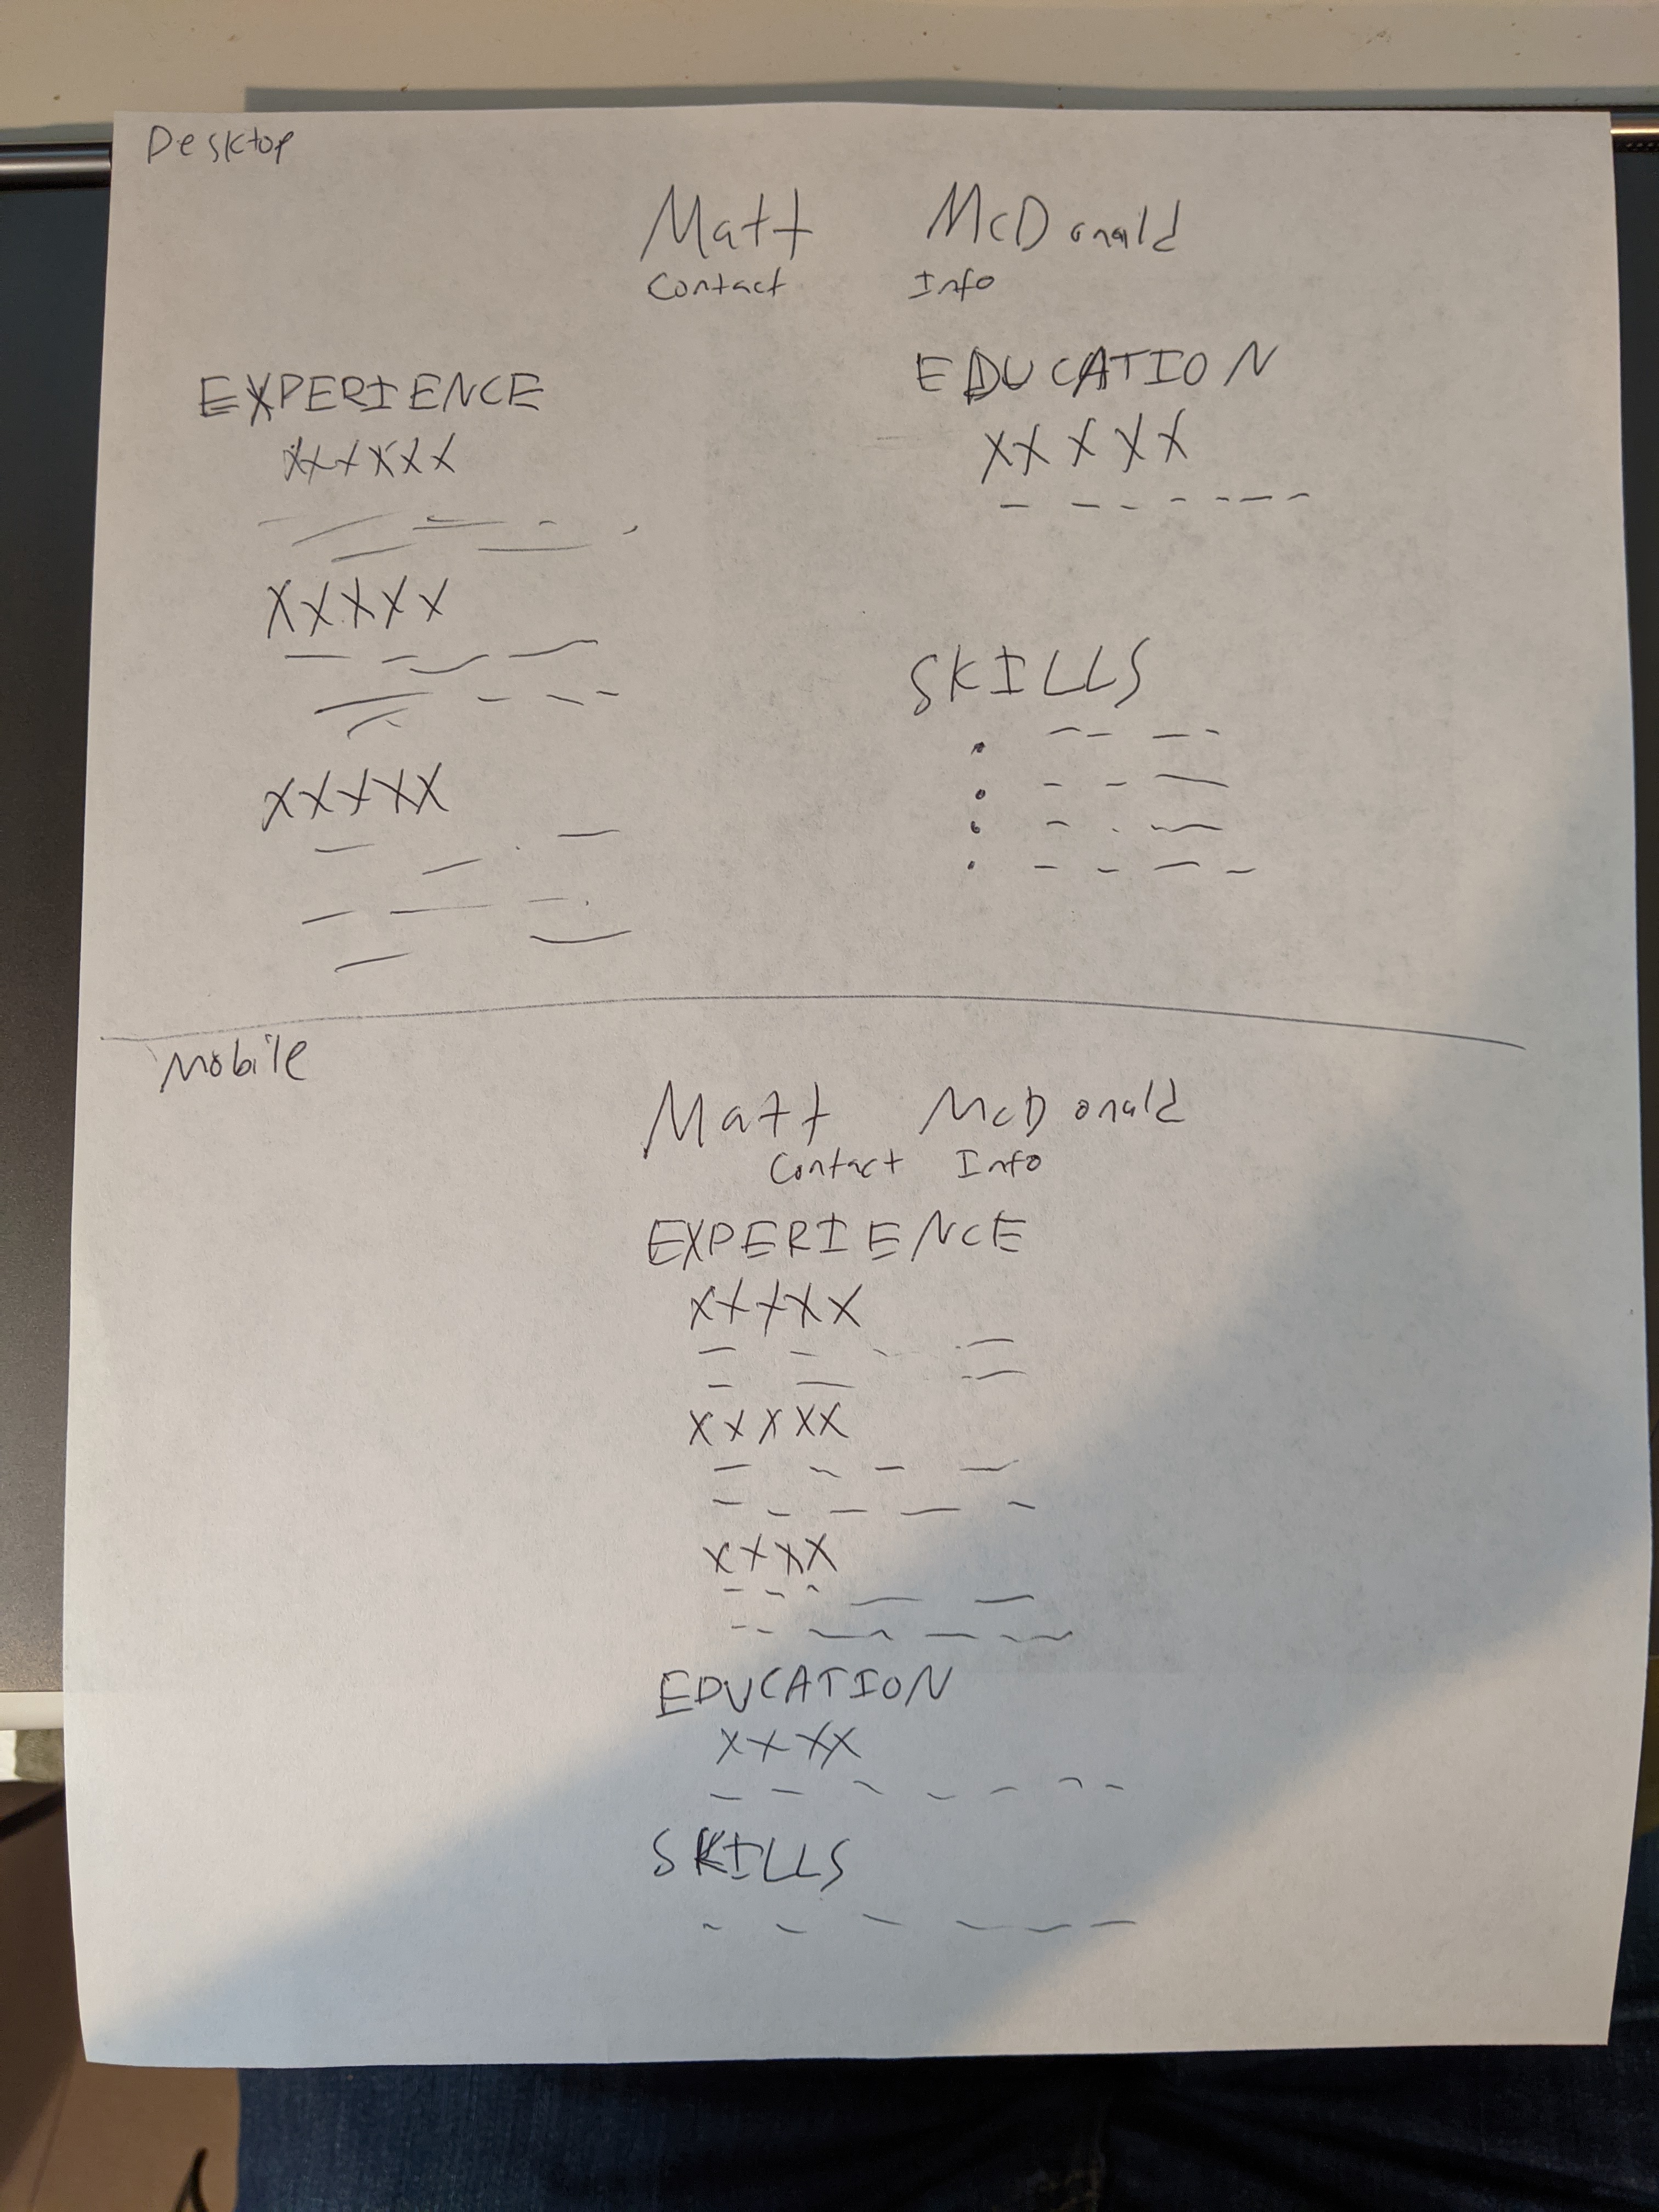 Desktop
Matt McDonald
Contact Info
EXPERIENCE
XXXXXX
XXXXX
XXXXX
EDUCATION
XXXXX
SKILLS
Mobile
Matt McDonald
Contact Info
EXPERIENCE
XXXXX
XXXXX
XXXX
EDUCATION
XXXX
SKILLS